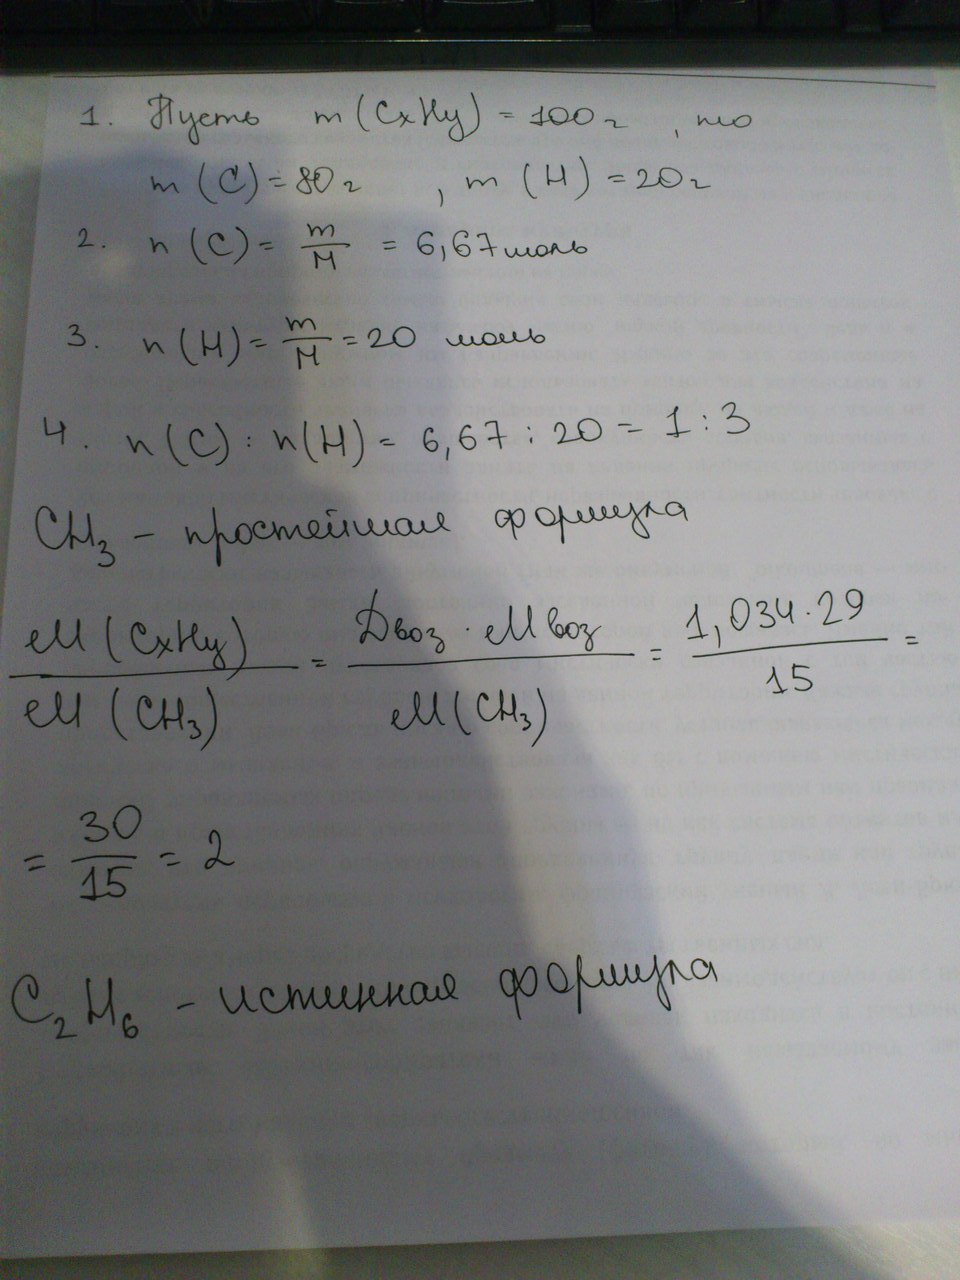 1. Пусть m (CxHy) = 100 г , то
m (C) = 80 г , m (H) = 20 г
2. n (C) = m/M = 6,67 моль
3. n (H) = m/M = 20 моль
4. n (C) : n (H) = 6,67 : 20 = 1 : 3
CH₃ - простейшая формула
M (CxHy) / M (CH₃) = Dвоз Mвоз / M (CH₃) = 1,034 · 29 / 15 =
= 30/15 = 2
C₂H₆ - истинная формула